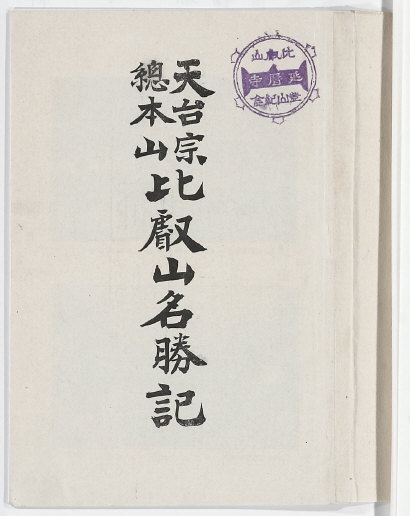 天台宗
總本山
比叡山名勝記
比叡山
延暦寺
登山紀念